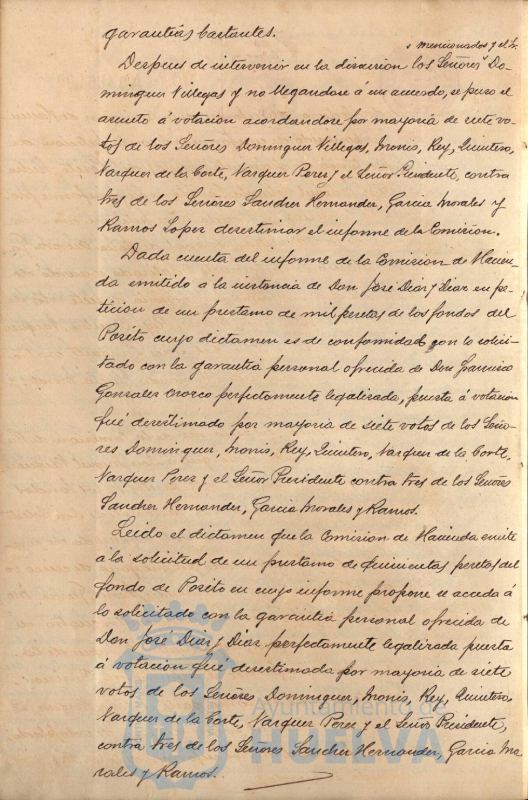 garantias bastantes.
s mencionados y el Sr.
Despues de intervenir en la discusion los Señores Do-
minguez Villegas y no llegandose á un acuerdo, se puso el
asunto á votacion acordandose por mayoria de siete vo-
tos de los Señores Dominguez Villegas, Monis, Rey, Quintero,
Vazquez de la Corte, Vazquez Perez y el Señor Presidente, contra
tres de los Señores Sanchez Hernandez, Garcia Morales y
Ramos Lopez desestimar el informe de la Comision.
Dada cuenta del informe de la Comision de Hacien-
da emitido á la instancia de Don José Diaz y Diaz en pe-
ticion de un prestamo de mil pesetas de los fondos del
Posito cuyo dictamen es de conformidad con lo solici-
tado con la garantia personal ofrecida de Don Francisco
Gonzalez Orozco perfectamente legalizada, puesta á votacion
fué desestimado por mayoria de siete votos de los Seño-
res Dominguez, Monis, Rey, Quintero, Vazquez de la Corte,
Vazquez Perez y el Señor Presidente contra tres de los Señores
Sanchez Hernandez, Garcia Morales y Ramos.
Leido el dictamen que la Comision de Hacienda emite
a la solicitud de un prestamo de quinientas pesetas del
fondo de Posito en cuyo informe propone se acceda á
lo solicitado con la garantia personal ofrecida de
Don José Diaz y Diaz perfectamente legalizada puesta
á votacion fué desestimada por mayoria de siete
votos de los Señores Dominguez, Monis, Rey, Quintero,
Vazquez de la Corte, Vazquez Perez y el Señor Presidente,
contra tres de los Señores Sanchez Hernandez, Garcia Mo-
rales y Ramos.
Ayuntamiento de
HUELVA